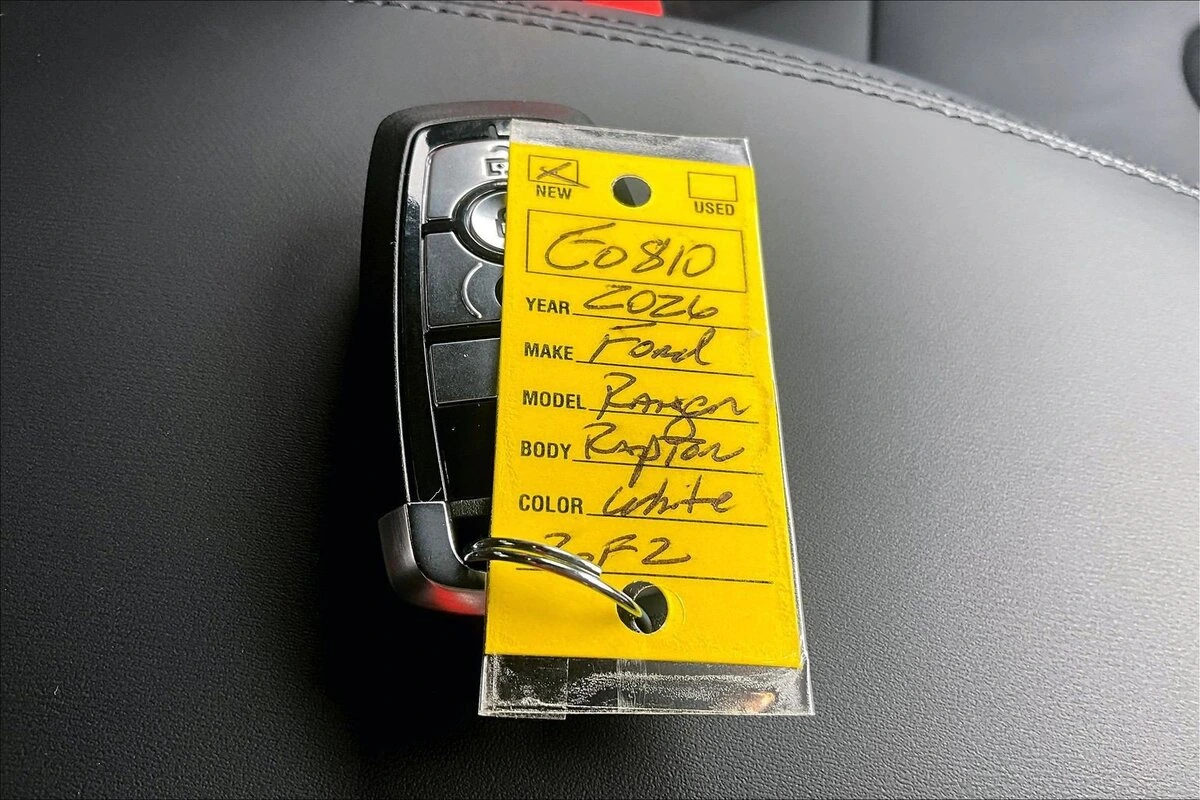 NEW USED
E0810
YEAR 2026
MAKE Ford
MODEL Ranger
BODY Raptor
COLOR White
2oF2